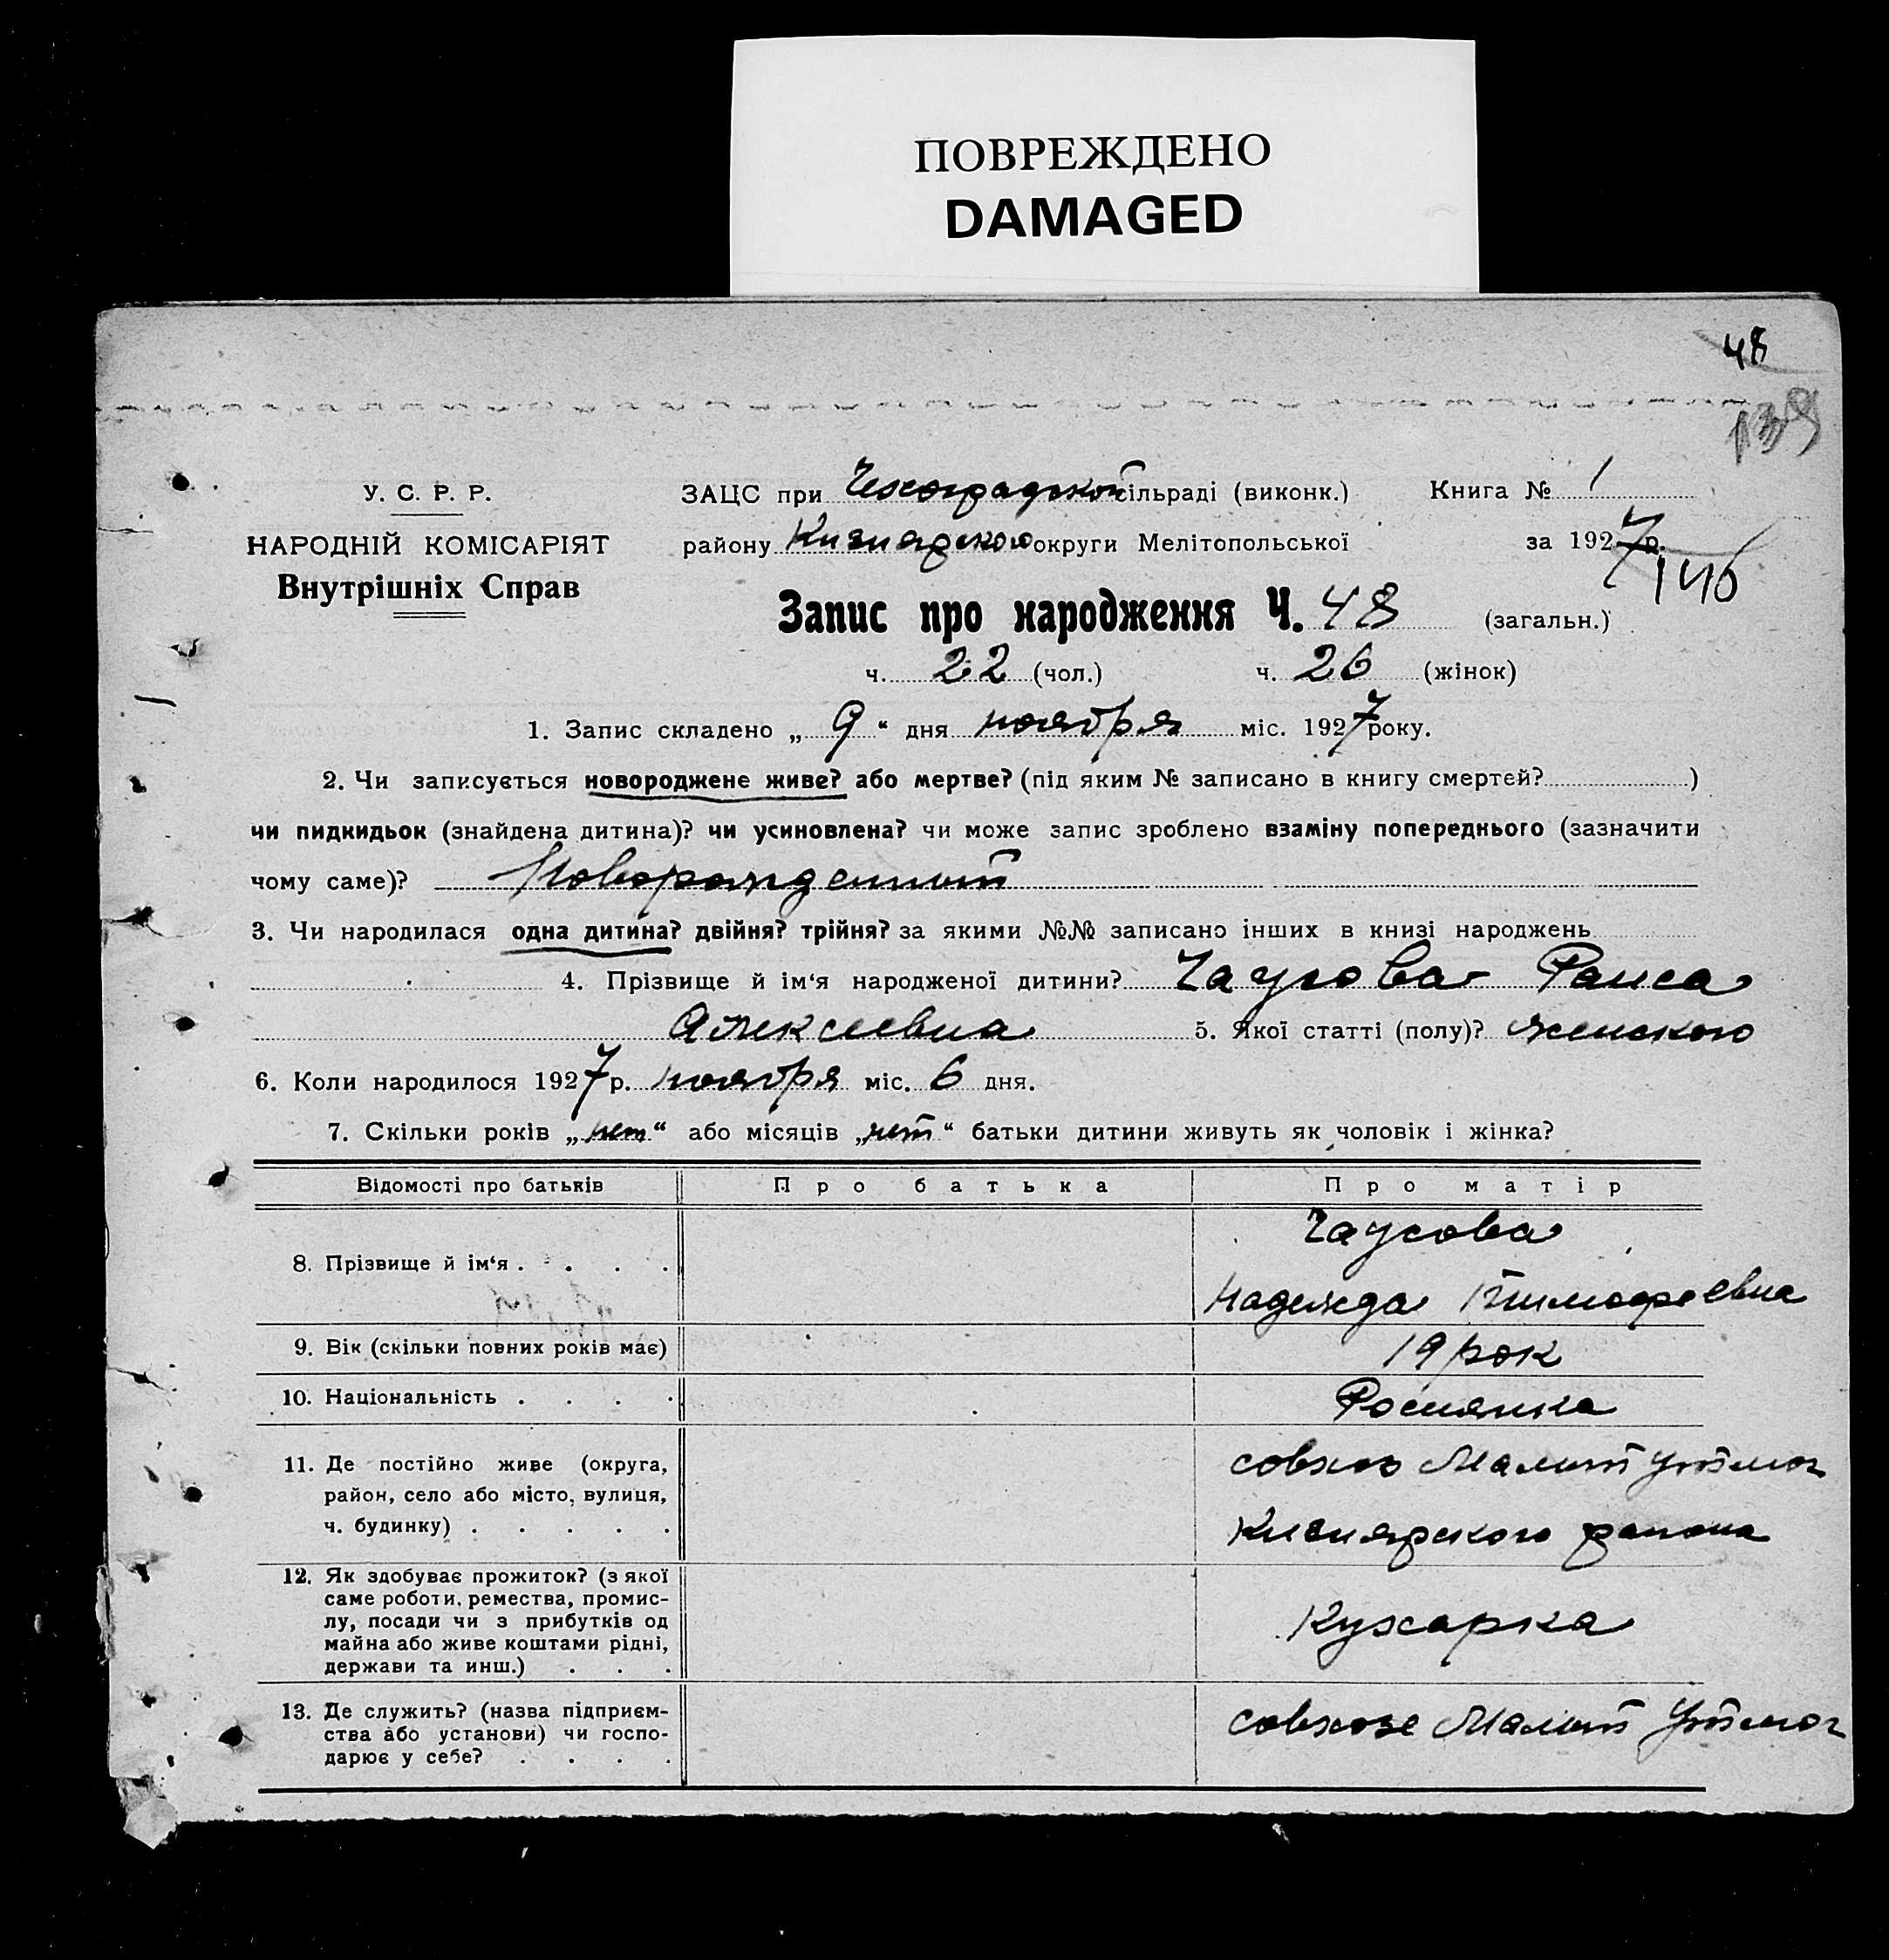 ПОВРЕЖДЕНО
DAMAGED
48
139
У. С. Р. Р.
НАРОДНІЙ КОМІСАРІЯТ
Внутрішніх Справ
ЗАЦС при Чехоградской сільраді (виконк.) Книга № 1
району Кизиярского округи Мелітопольської за 1927 р.
146
Запис про народження Ч. 48 (загальн.)
ч. 22 (чол.) ч. 26 (жінок)
1. Запис складено „ 9 “ дня ноября міс. 1927 року.
2. Чи записується новороджене живе? або мертве? (під яким № записано в книгу смертей? )
чи пидкидьок (знайдена дитина)? чи усиновлена? чи може запис зроблено взаміну попереднього (зазначити
чому саме)? Новорожденный
3. Чи народилася одна дитина? двійня? трійня? за якими №№ записано інших в книзі народжень
4. Прізвище й ім‘я народженої дитини? Чаусова Раиса
Алексеевна 5. Якої статті (полу)? женского
6. Коли народилося 1927 р. ноября міс. 6 дня.
7. Скільки років „нет“ або місяців „нет“ батьки дитини живуть як чоловік і жінка?
Відомості про батьків Про батька Про матір
8. Прізвище й ім‘я . . . . Чаусова
Надежда Тимофеевна
9. Вік (скільки повних років має) 19 рок
10. Національність . . . . Росиянка
11. Де постійно живе (округа, район, село або місто, вулиця, ч. будинку) . . . . . совхоз Малый Утлюг
Кизиярского района
12. Як здобуває прожиток? (з якої
саме роботи, ремества, промис-
лу, посади чи з прибутків од
майна або живе коштами рідні,
держави та инш.) . . . Кухарка
13. Де служить? (назва підприєм-
ства або установи) чи госпо-
дарює у себе? . . . . совхозе Малый Утлюг